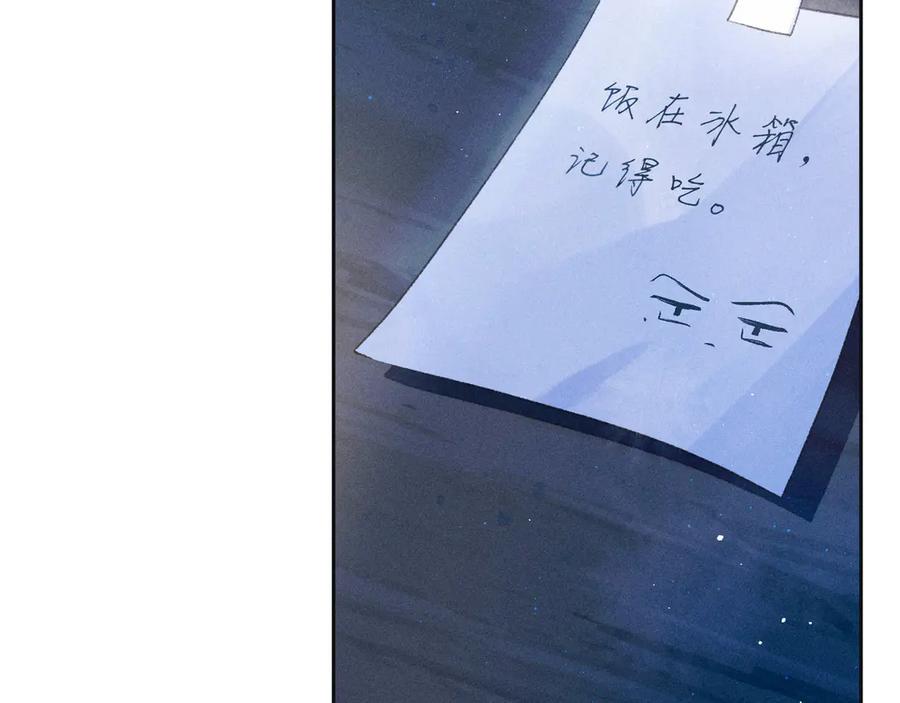 饭在冰箱，
记得吃。